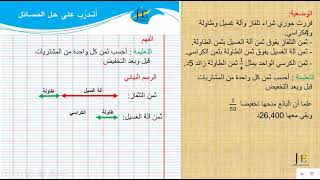 أتدرّب على حل المسائل
الوضعية:
قررت جوري شراء تلفاز وآلة غسيل وطاولة
و4كراسي.
- ثمن التلفاز يفوق ثمن آلة الغسيل بثمن الطاولة.
- ثمن آلة الغسيل يفوق ثمن الطاولة بثمن الكراسي.
- ثمن الكرسي الواحد يمثل 1/4 ثمن الطاولة زائد 5.
التعليمة : أحسب ثمن كل واحدة من المشتريات
قبل وبعد التخفيض
علما أن البائع منحها تخفيضا 1/50
وبقي معها 26,400.
الفهم
التعليمة: أحسب ثمن كل واحدة من المشتريات
قبل وبعد التخفيض
الرسم البياني
ثمن التلفاز:
آلة غسيل
طاولة
ثمن آلة الغسيل:
الكراسي
طاولة